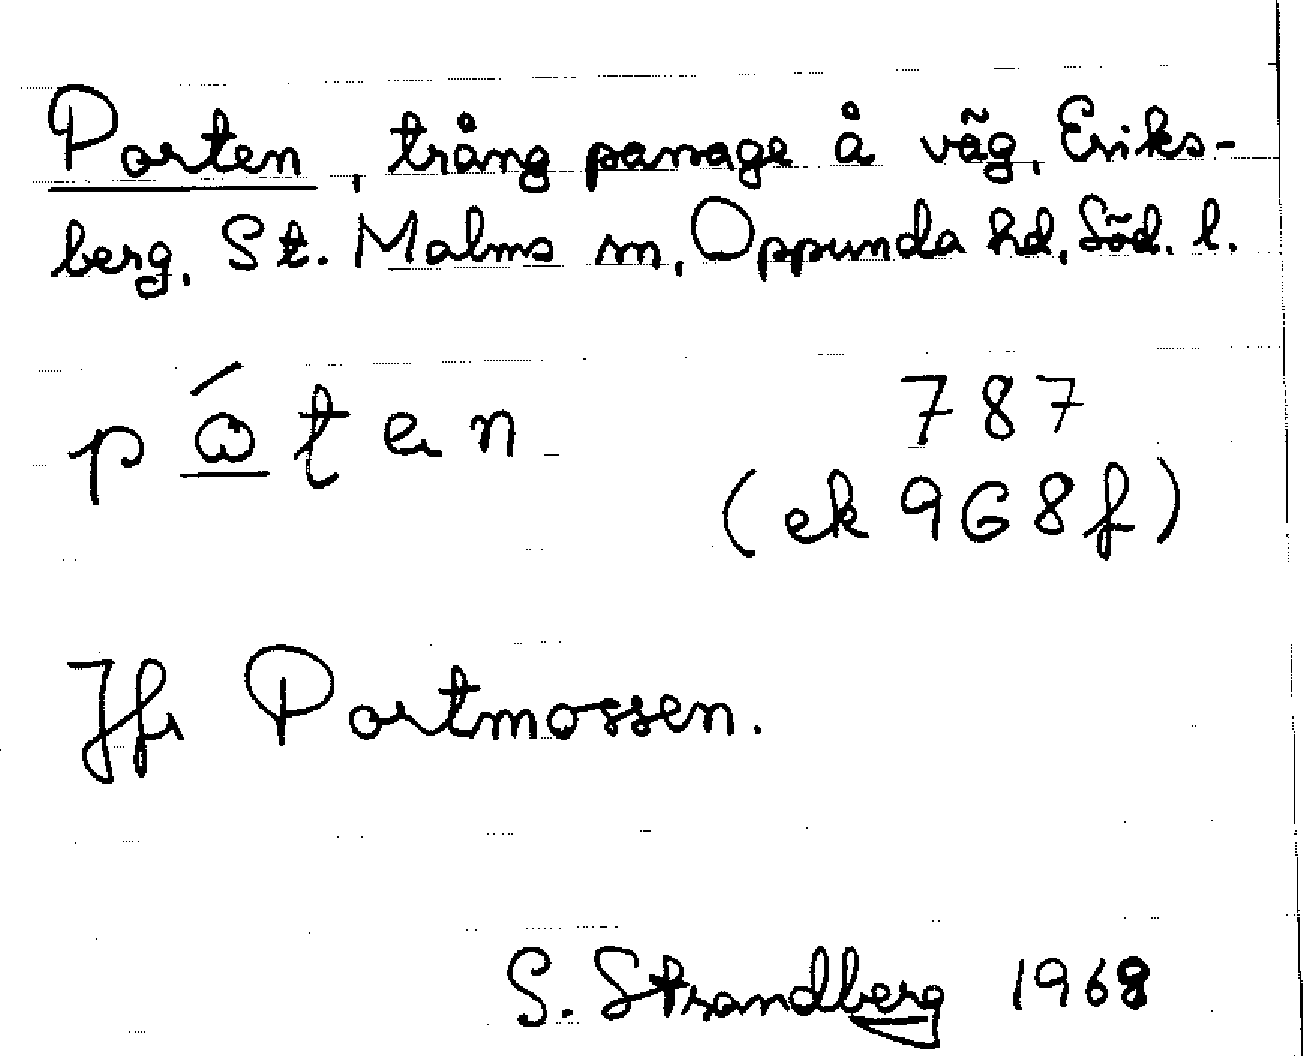 Porten, trång passage å väg, Eriks-
berg, St. Malms sn, Oppunda hd, Söd. l.
pǻten 787
(ek 9G8f)
Jfr Portmossen.
S. Strandberg 1968